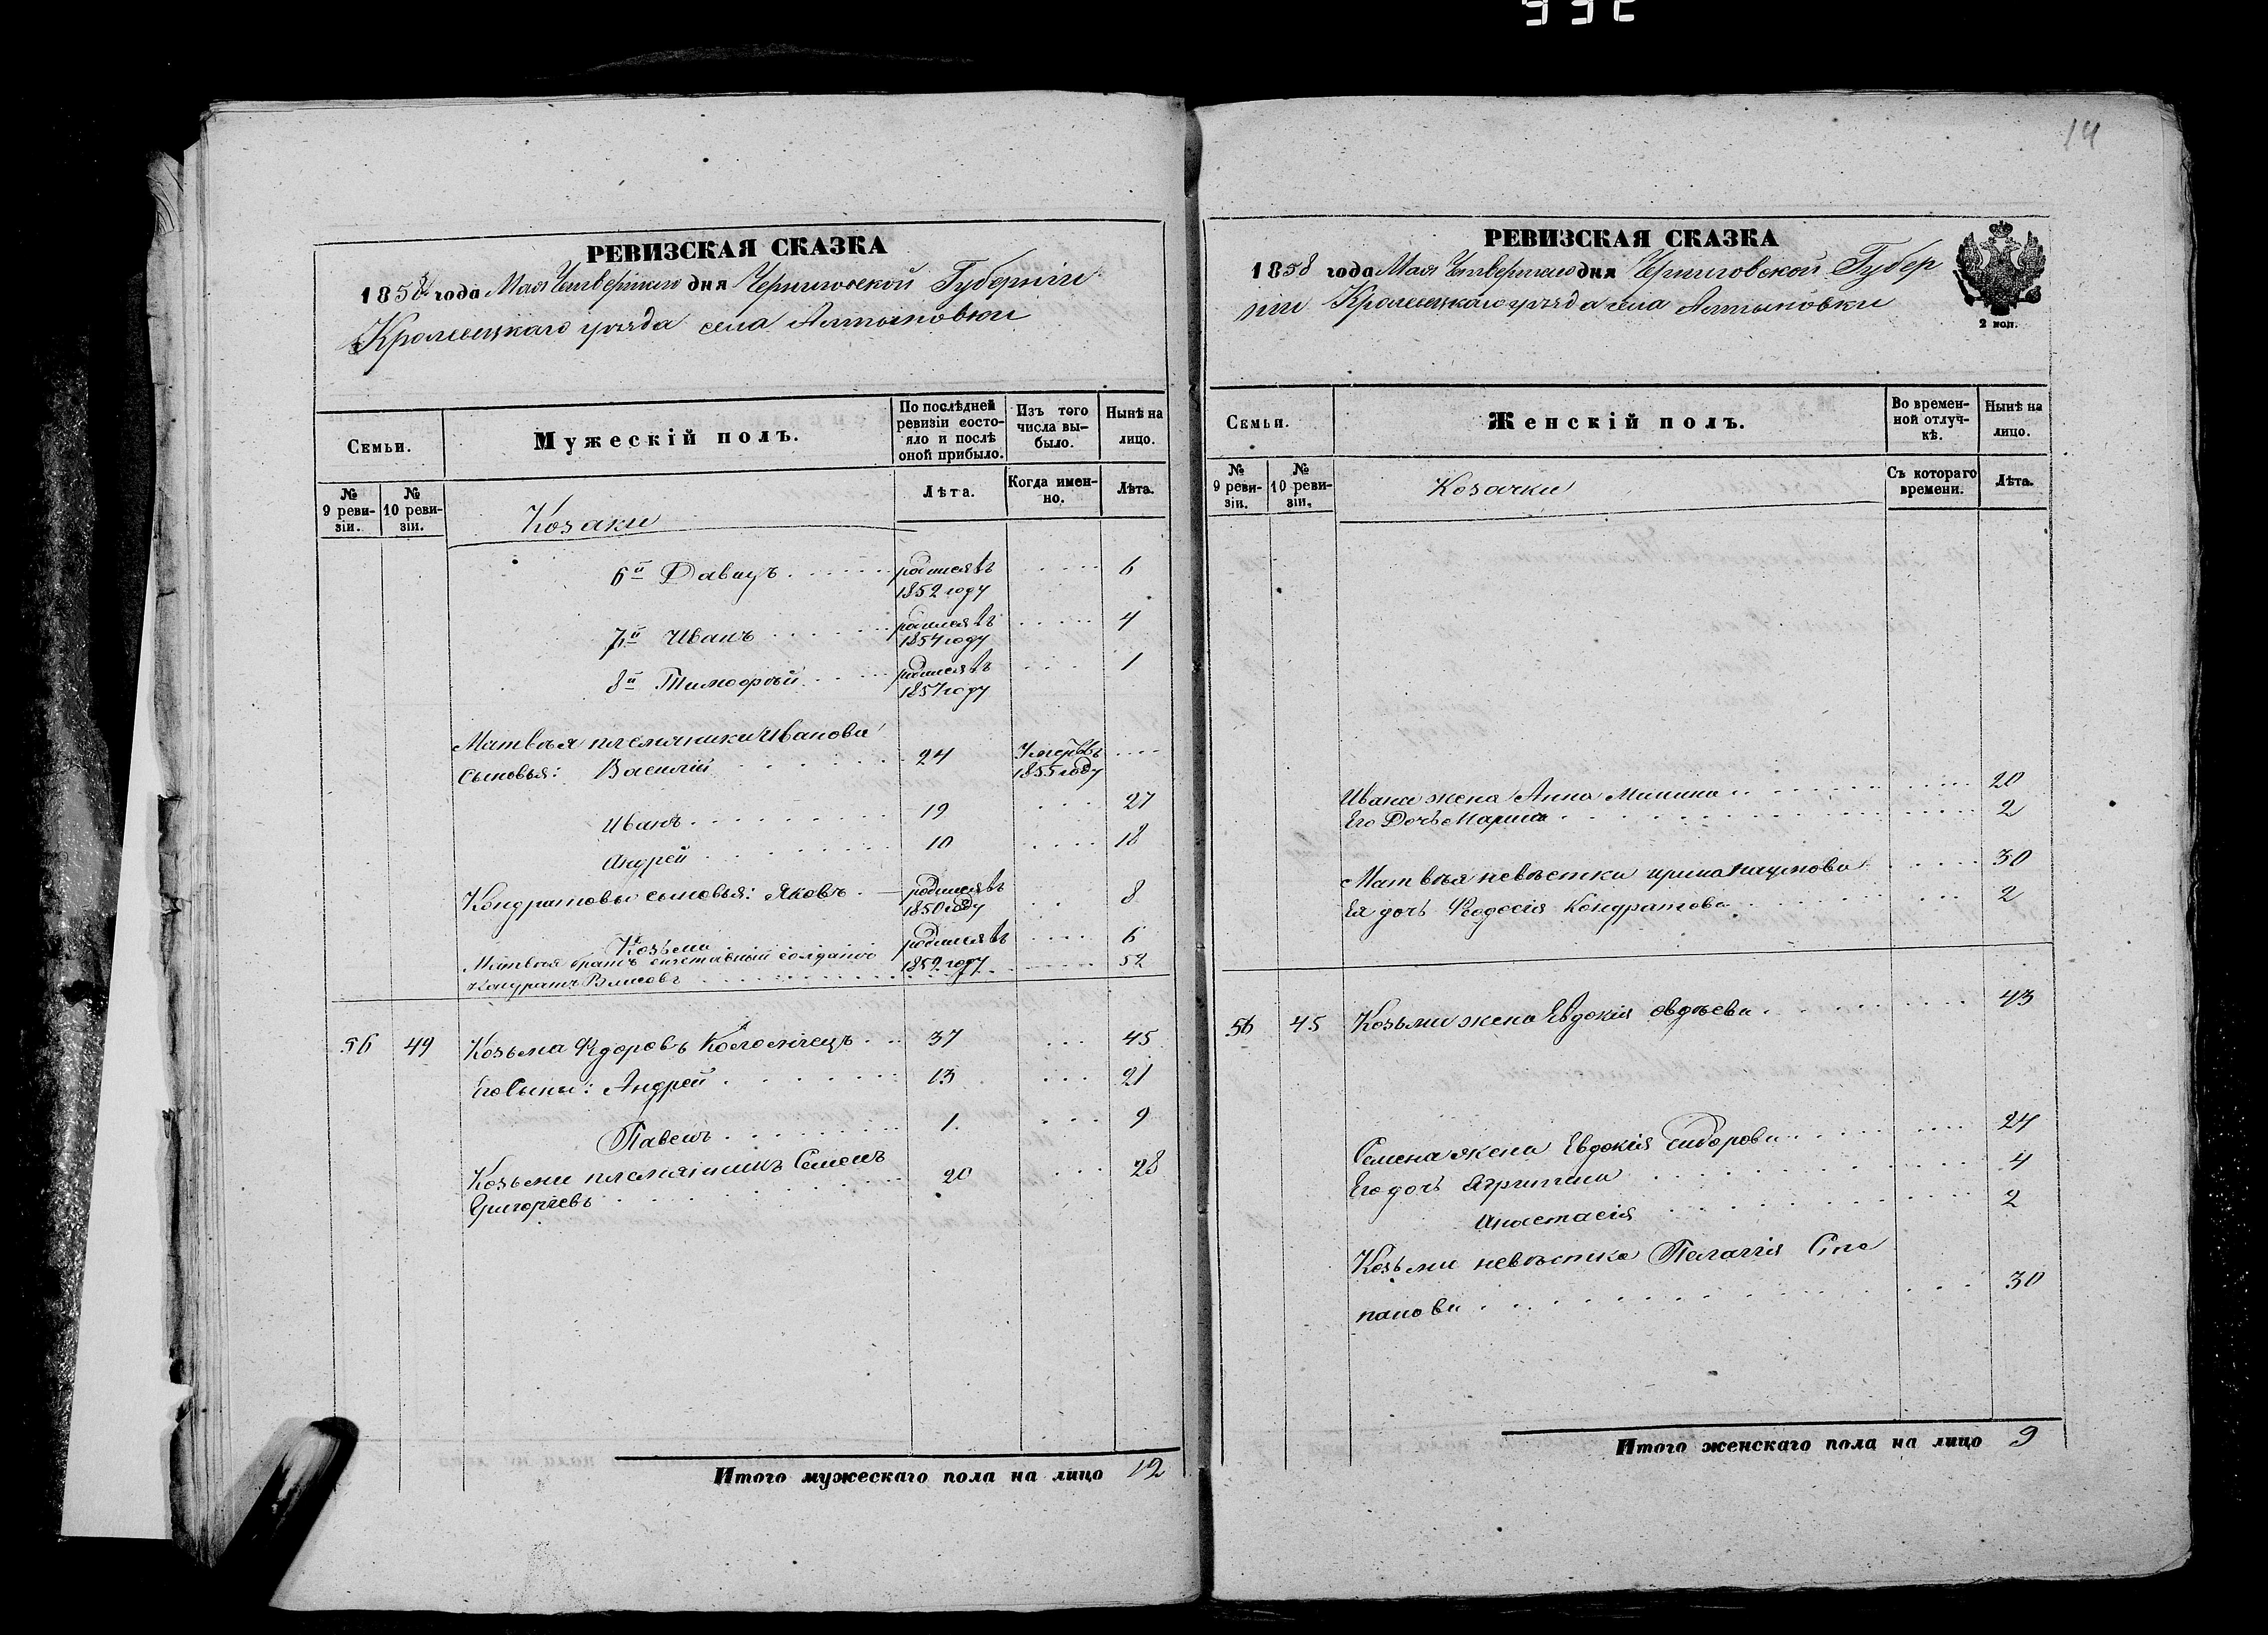 14
РЕВИЗСКАЯ СКАЗКА
1858 года Мая Четвертаго дня Черниговской Губерніи
Кролевецкаго уѣзда села Алтыновки
Семьи.
Мужескій полъ.
По послѣдней ревизіи состояло и послѣ оной прибыло.
Изъ того числа выбыло.
Нынѣ на лицо.
№ 9 ревизіи.
№ 10 ревизіи.
Козаки
Лѣта.
Когда именно.
Лѣта.
6й Давидъ родился въ 1852 году 6
7й Иванъ родился въ 1854 году 4
8й Тимофѣй родился въ 1857 году 1
Матвѣя племяники Ивановы
сыновья: Василій 24 Умеръ въ 1855 году
Иванъ 19 27
Андрей 10 18
Кондратовы сыновья: Яковъ родился въ 1850 году 8
Козьма родился въ 1852 году 6
Матвѣя братъ отставный солдатъ
Кондратъ Власовъ 52
56 49 Козьма Федоровъ Коломіецъ 37 45
Его сыны: Андрей 13 21
Павелъ 1 9
Козьмы племянникъ Семенъ
Григоріевъ 20 28
Итого мужескаго пола на лицо 12
РЕВИЗСКАЯ СКАЗКА
1858 года Мая Четвертаго дня Черниговской Губер
ніи Кролевецкаго уѣзда села Алтыновки
2 коп.
Семьи.
Женскій полъ.
Во временной отлучкѣ.
Нынѣ на лицо.
№ 9 ревизіи.
№ 10 ревизіи.
Козачки
Съ котораго времени.
Лѣта.
Ивана жена Анна Минина 20
Его Дочь Марина 2
Матвѣя невѣстка Ирина Наумова 30
Ея дочь Феодосія Кондратова 2
56 45 Козьмы жена Евдокія Овдѣева 43
Семена жена Евдокія Сидорова 24
Его дочь Агрипина 4
Анастасія 2
Козьмы невѣстка Пелагія Сте
панова 30
Итого женскаго пола на лицо 9